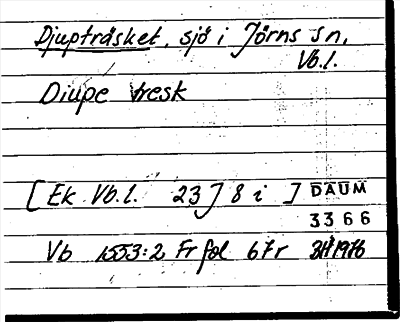 Djupträsket, sjö i Jörns sn,
Vb.l.
Diupe tresk
[Ek Vb.l. 23J 8 i ] DAUM
3366
Vb 1553:2 Fr fol 67r 1976